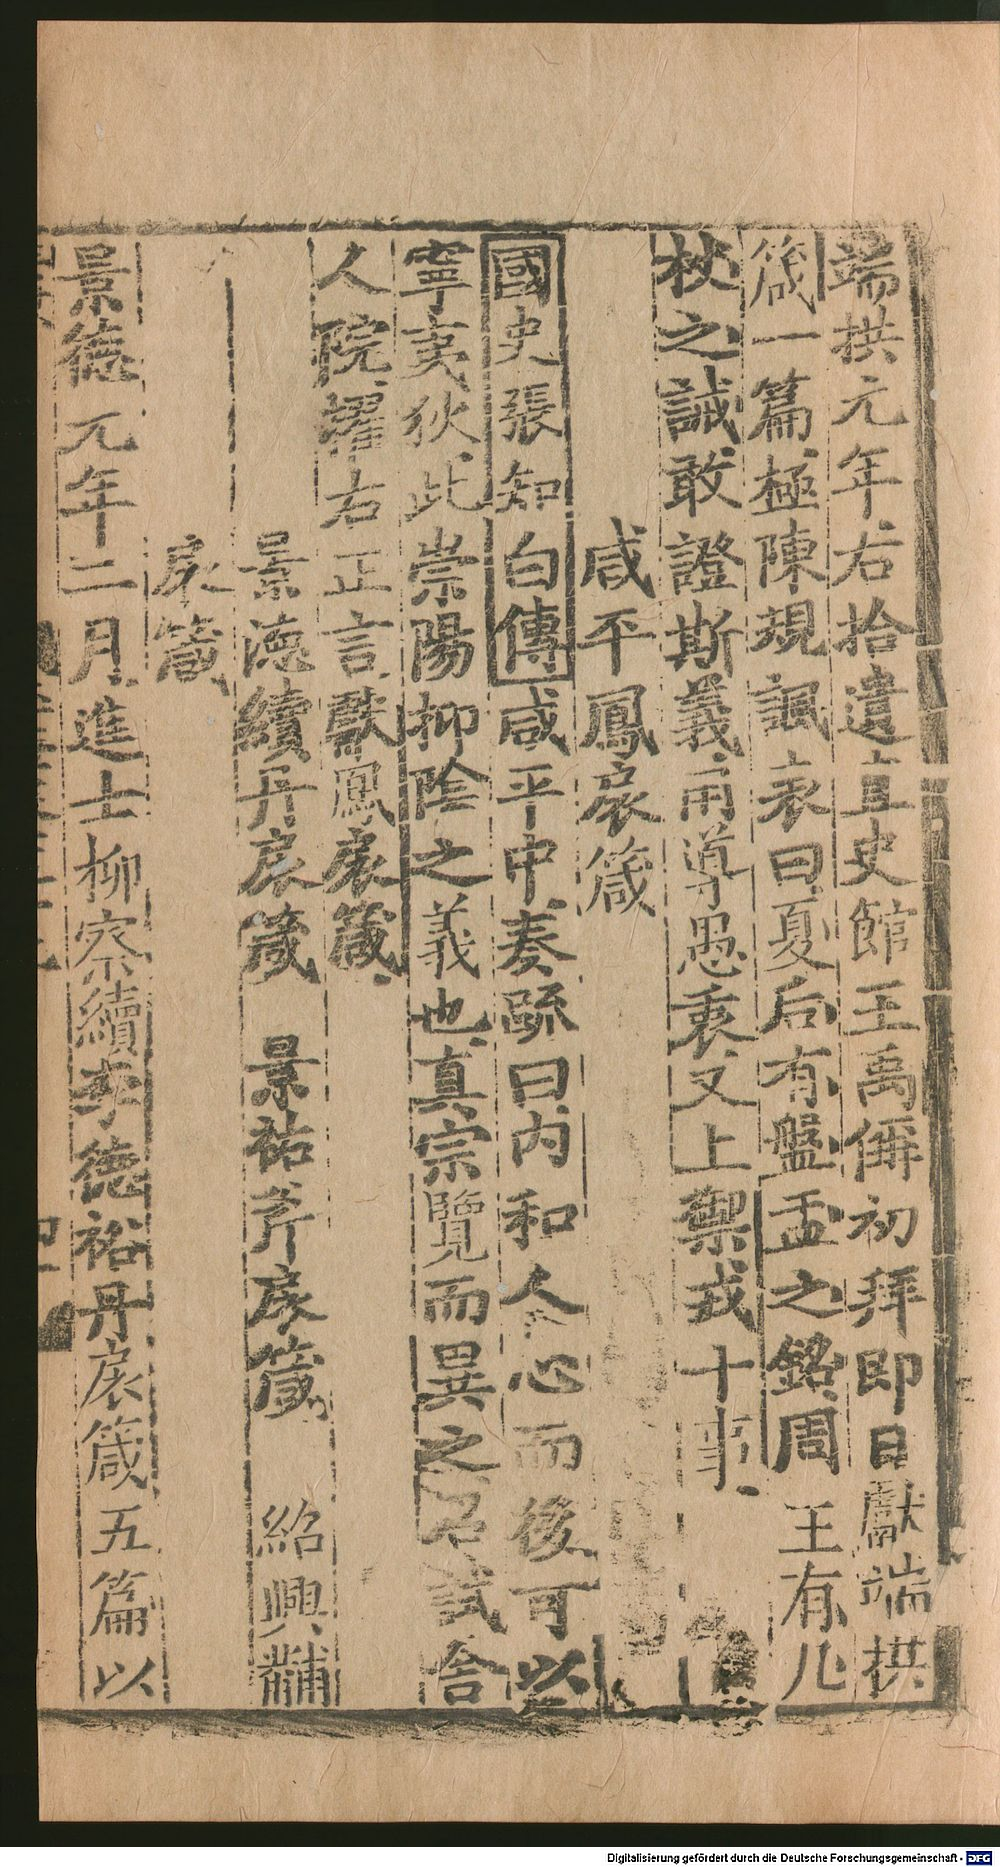 端拱元年右拾遺直史館王禹偁初拜即日獻端拱
箴一篇極陳規諷表曰夏后有盤盂之銘周王有几
杖之誡敢證斯義用導愚衷又上禦戎十事
咸平鳳扆箴
國史張知白傳咸平中奏疏曰内和人心而後可以
寧夷狄此崇陽抑陰之義也真宗覽而異之召試舍
人院擢右正言獻鳳扆箴
景德續丹扆箴　景祐斧扆箴　紹興黼
扆箴
景德元年二月進士柳察續李德裕丹扆箴五篇以
Digitalisierung gefördert durch die Deutsche Forschungsgemeinschaft - DFG